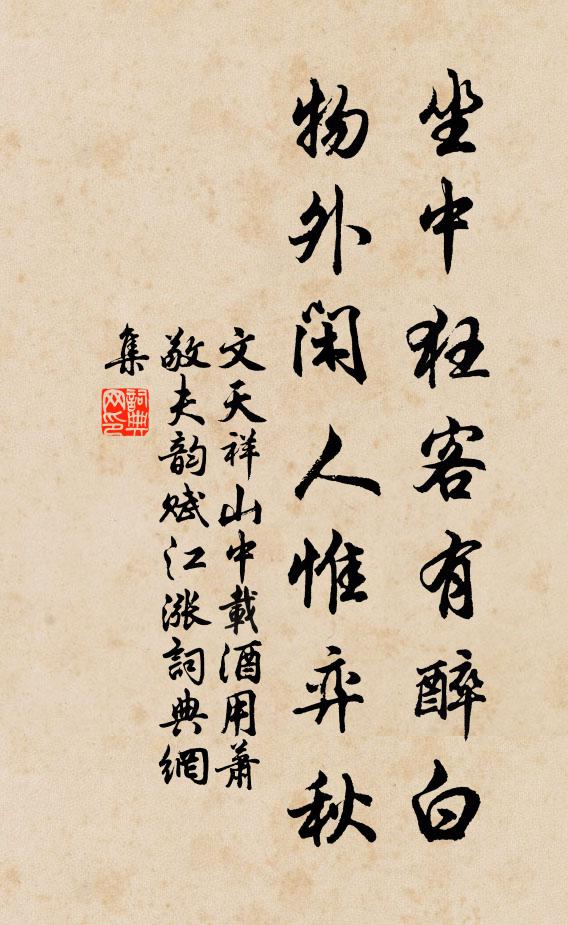 坐中狂客有醉白
物外閑人惟弈秋
文天祥山中載酒用蕭
敬夫韵賦江漲詞典網
集
詞典
网印